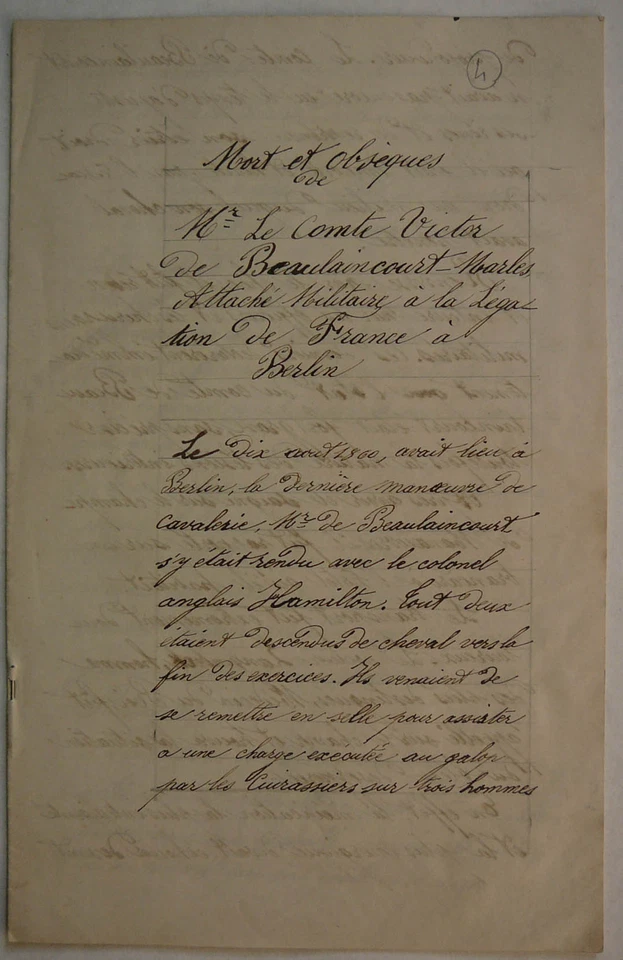 4
Mort et obsèques
de
Mr Le Comte Victor
de Beaulaincourt-Marles
Attaché Militaire à la Léga-
tion de France à
Berlin
Le dix août 1860, avait lieu à
Berlin, la dernière manœuvre de
cavalerie. Mr de Beaulaincourt
s'y était rendu avec le colonel
anglais Hamilton. Tout deux
étaient descendus de cheval vers la
fin des exercices. Ils venaient de
se remettre en selle pour assister
a une charge exécutée au galop
par les Cuirassiers sur trois hommes